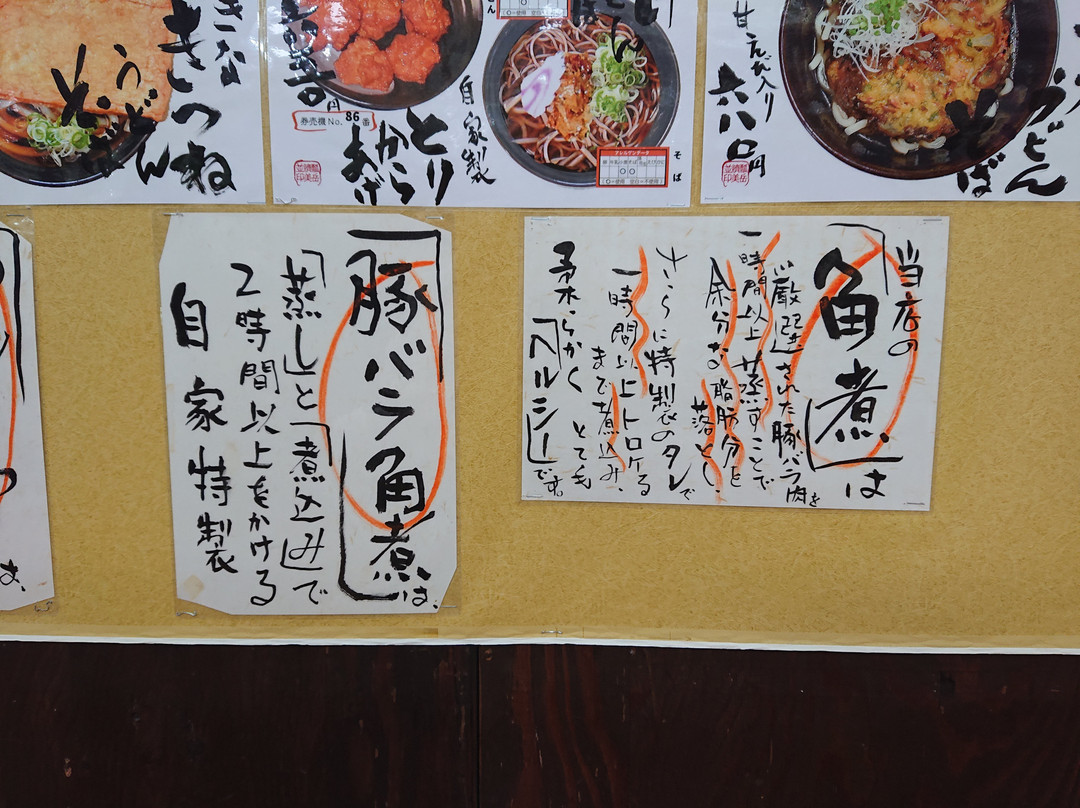 きな
きつね
うどん
自家製
円
券売機No. 86番
とり
から
あげ
アレルゲンデータ
そば
甘えび入り
六八〇円
うどん
そば
当店の
「角煮」は
厳選された豚バラ肉を
一時間以上蒸すことで
余分な脂肪分を
落とし
さらに特製のタレで
一時間以上トロケる
まで煮込み、
柔らかくとても
「ヘルシー」です。
「豚バラ角煮」は、
「蒸し」と「煮込み」で
2時間以上をかける
自家特製
は、